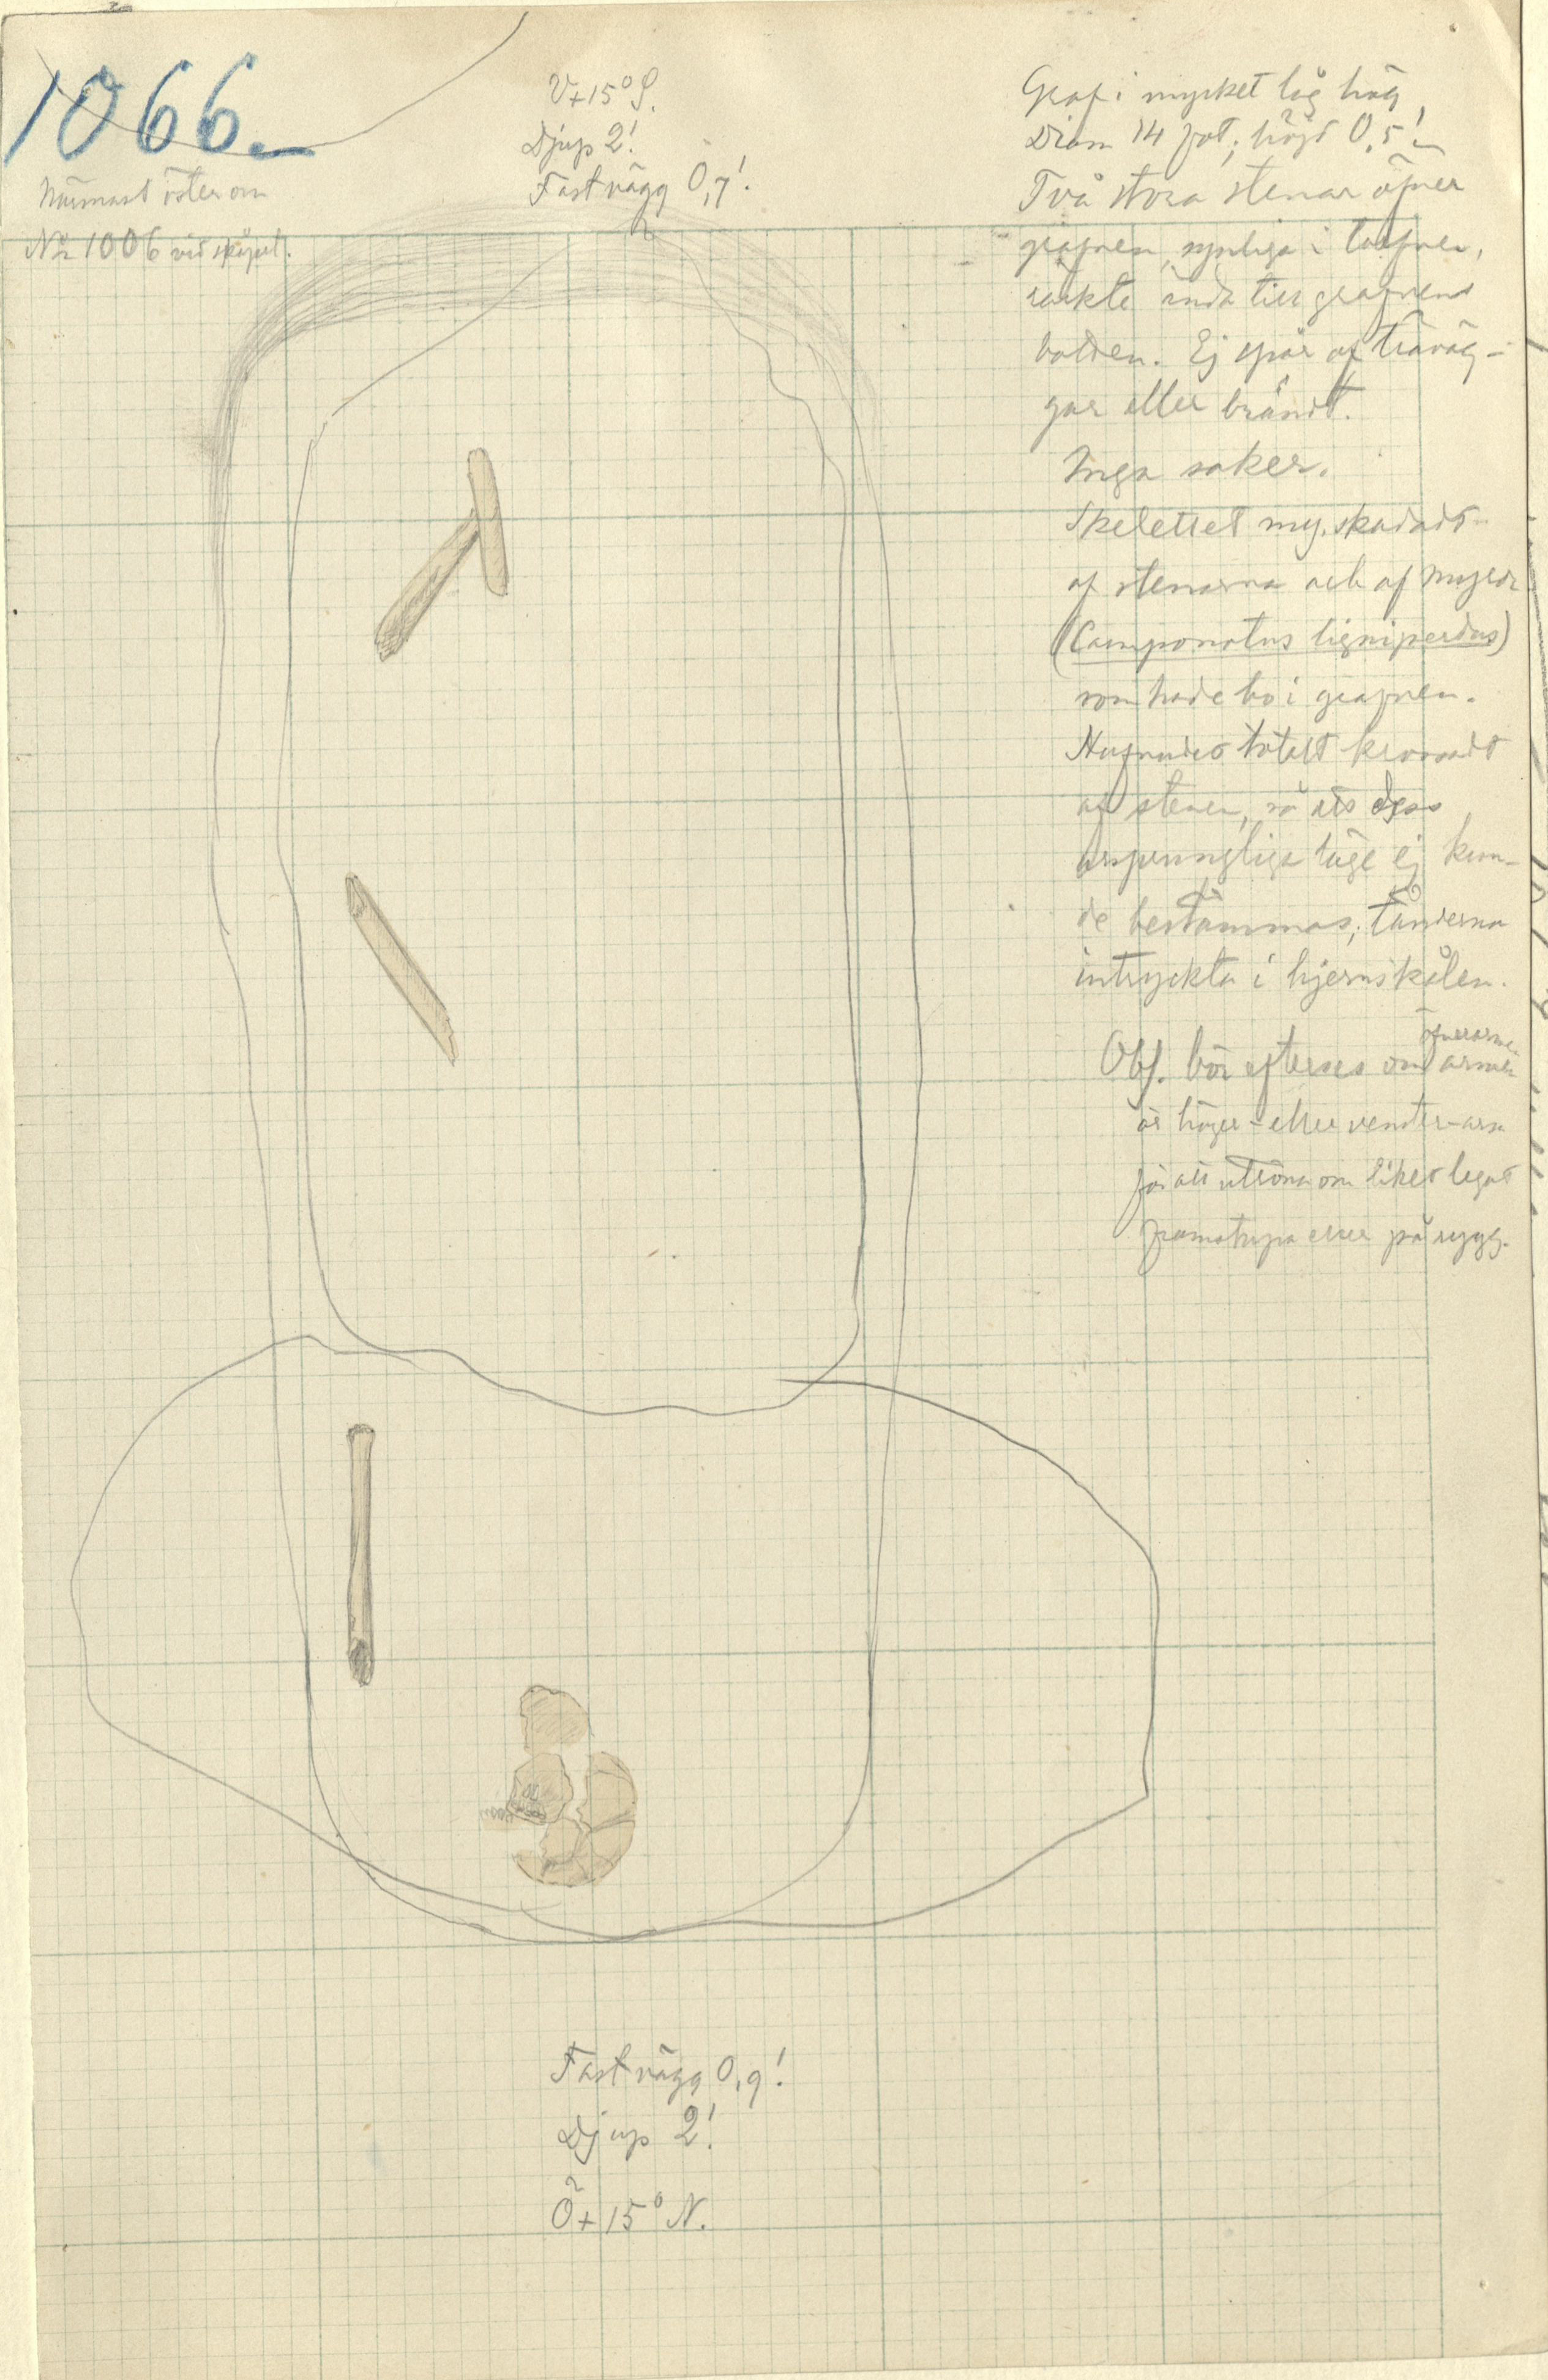 1066.
Närmast öster om
N:r 1006 vid
V+15° S.
Djup 2'.
Fast vägg 0,7'.
Graf i mycket låg hög,
Diam 14 fot; höjd 0,5'.
Två stora stenar öfver
grafven, synliga i torfven,
räckte ända till grafvens
botten. Ej spår af träväg-
gar eller brändt.
Inga saker.
Skelettet my. skadadt
af stenarna och af myror
(Camponotus ligniperdus)
som hade bo i grafven.
Hufvudet totalt krossadt
af stenen, så att dess
ursprungliga läge ej kun-
de bestämmas; tänderna
intryckta i hjernskålen.
Obs. bör efterses om armen
öfverarmen
är höger- eller venster-arm
för att utröna om liket legat
framstupa eller på rygg.
Fast vägg 0,9'.
Djup 2'.
Ö+15° N.